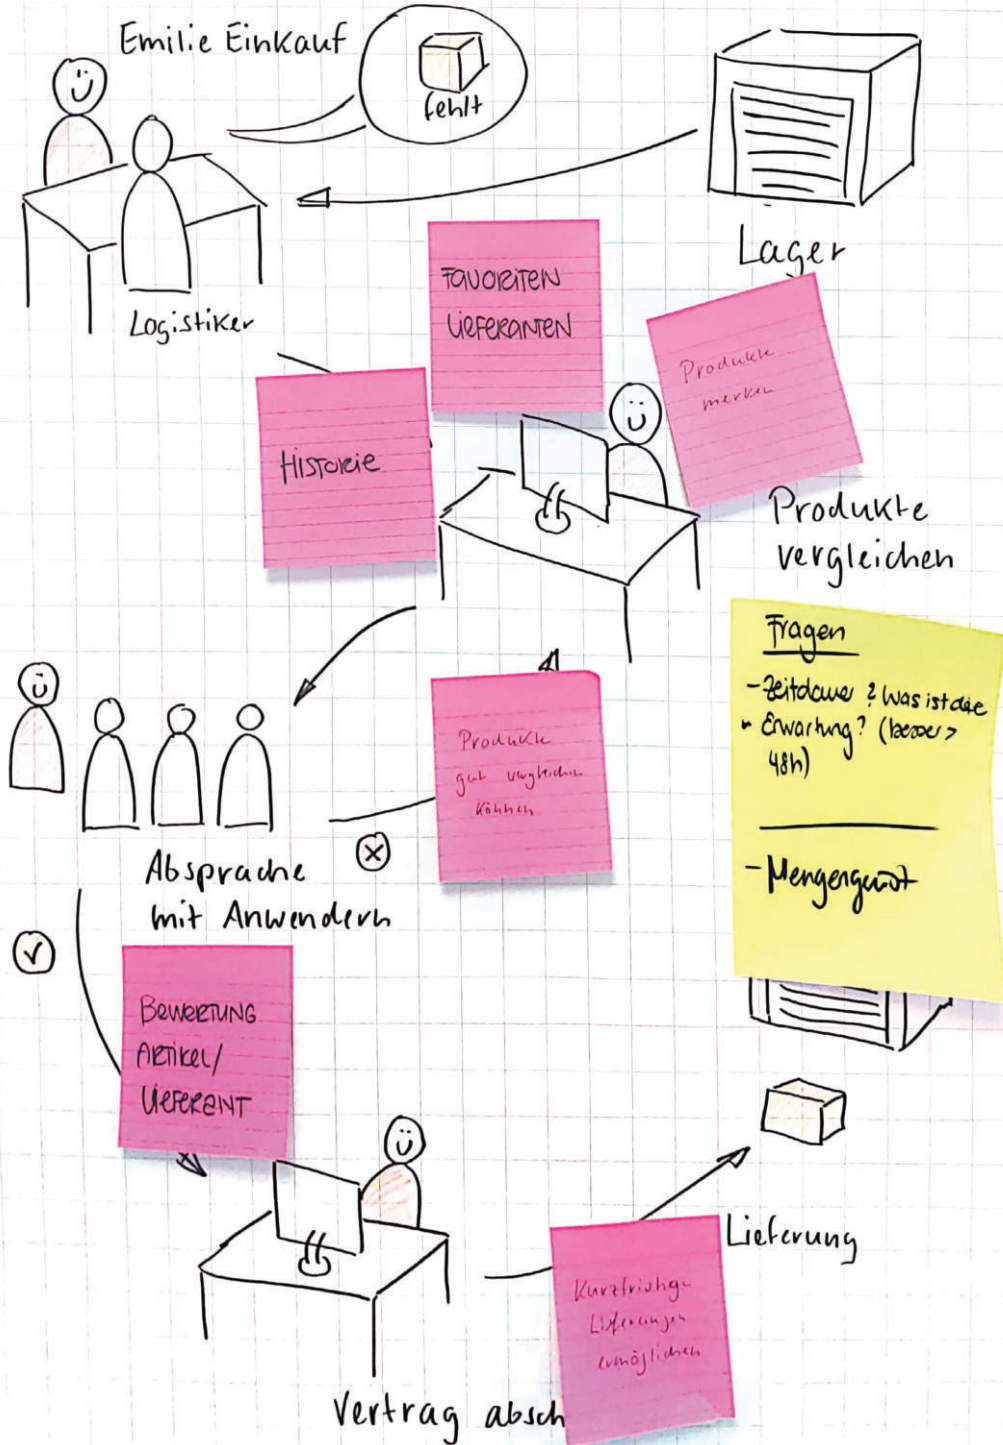 Emilie Einkauf
fehlt
Lager
Logistiker
FAVORITEN
LIEFERANTEN
Produkte
merken
HISTORIE
Produkte
vergleichen
Fragen
- Zeitdauer ? Was ist die
Erwartung? (besser >
48h)
- Mengengerüst
Produkte
gut vergleichen
können
Absprache
mit Anwendern
BEWERTUNG
ARTIKEL/
LIEFERANT
Lieferung
Kurzfristige
Lieferungen
ermöglichen
Vertrag absch